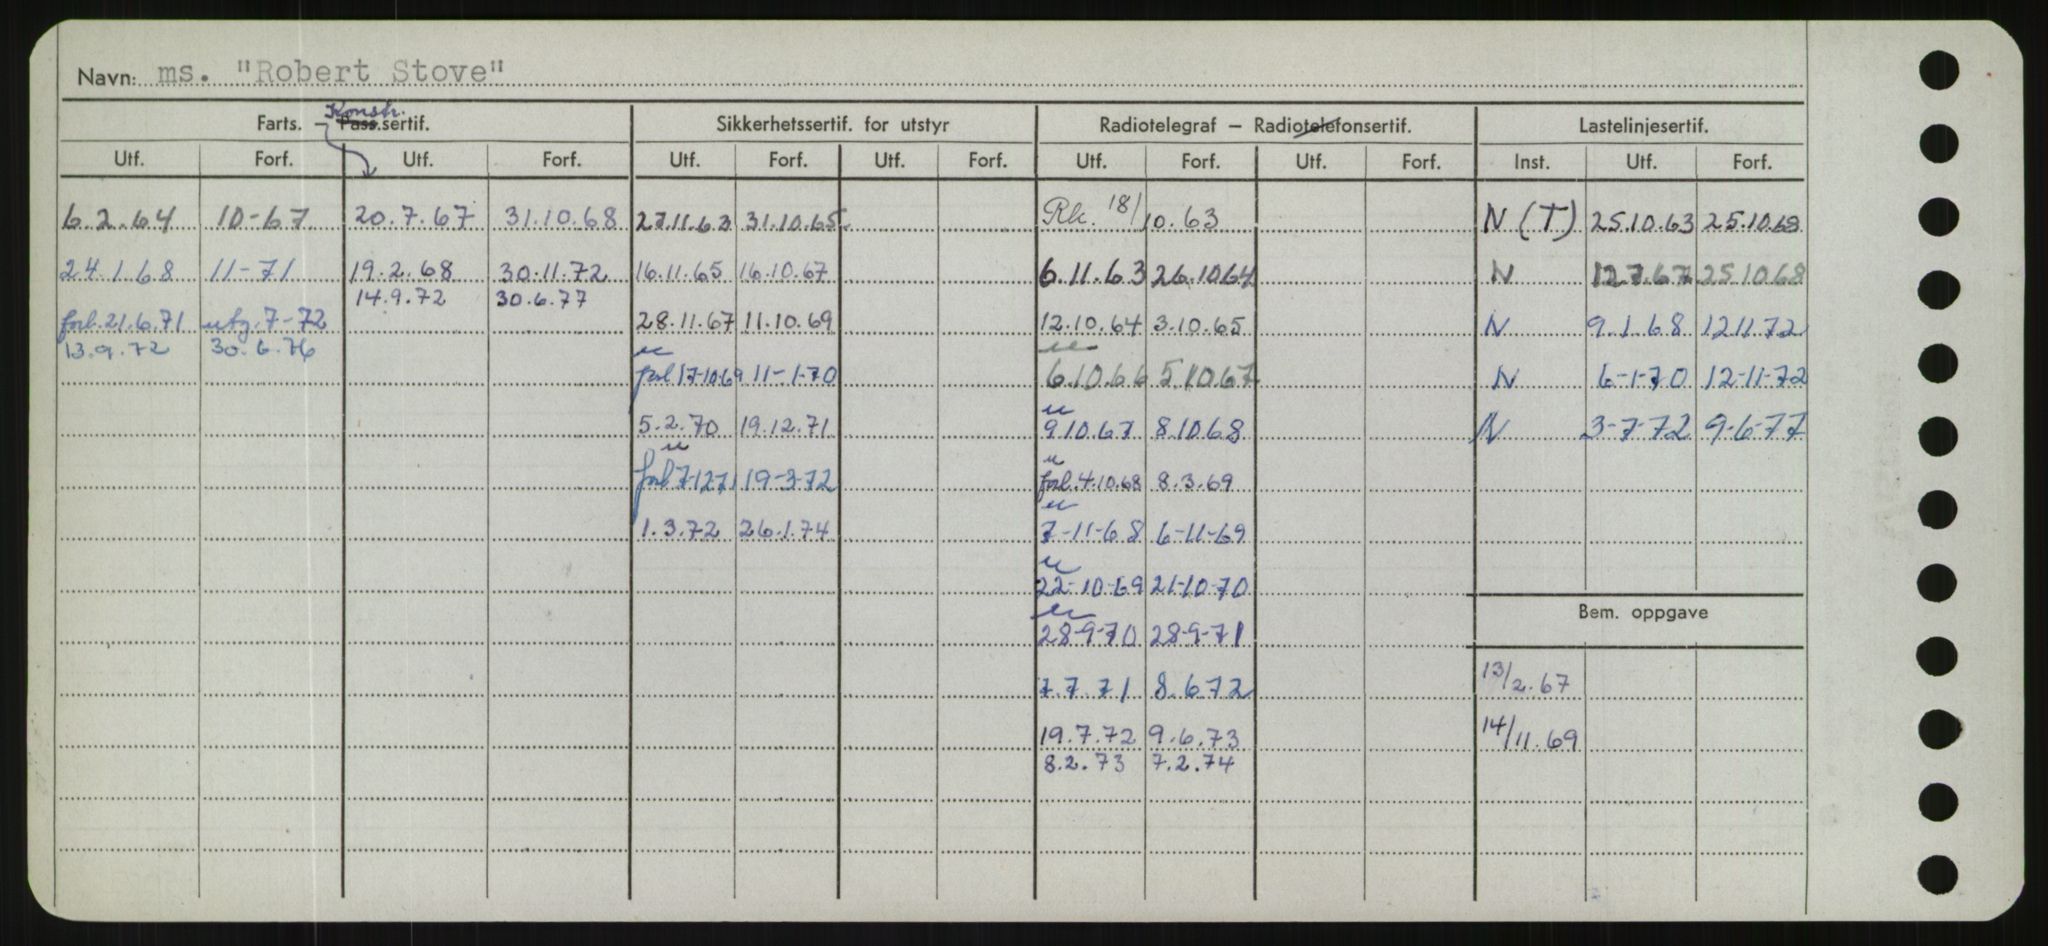 Navn: ms. "Robert Stove"
Konstr.
Farts. – Pass.sertif. Sikkerhetssertif. for utstyr Radiotelegraf – Radiotelefonsertif. Lastelinjesertif.
Utf. Forf. Utf. Forf. Utf. Forf. Utf. Forf. Utf. Forf. Utf. Forf. Inst. Utf. Forf.
6.2.64 10-67 20.7.67 31.10.68 27.11.63 31.10.65 Rk. 18/10.63 N (T) 25.10.63 25.10.68
24.1.68 11-71 19.2.68 30.11.72 16.11.65 16.10.67 6.11.63 26.10.64 N 12.7.67 25.10.68
14.9.72 30.6.77
forl.21.6.71 utg.7-72 28.11.67 11.10.69 12.10.64 3.10.65 N 9.1.68 12.11.72
13.9.72 30.6.76
u
forl 17-10-69 11-1-70 6.10.66 5.10.67 N 6-1-70 12-11-72
u
5.2.70 19.12.71 9.10.67 8.10.68 N 3-7-72 9-6-77
u u
forl 7-12-71 19-3-72 forl.4.10.68 8.3.69
u
1.3.72 26.1.74 7-11-68 6-11-69
u
22-10-69 21-10-70
u
Bem. oppgave
28-9-70 28-9-71
7.7.71 8.6.72 13/2.67
19.7.72 9.6.73 14/11.69
8.2.73 7.2.74